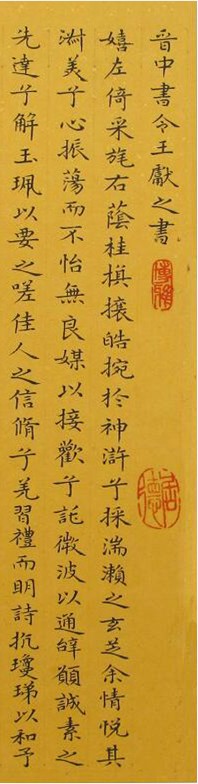 晉中書令王獻之書
嬉左倚采旄右蔭桂旗攘皓捥於神滸兮採湍瀨之玄芝余情悅其
淑美兮心振蕩而不怡無良媒以接歡兮託微波以通辭願誠素之
先達兮解玉珮以要之嗟佳人之信脩兮羌習禮而明詩抗瓊珶以和予